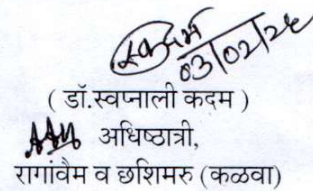 कदम
03/02/26
( डॉ.स्वप्नाली कदम )
अधिष्ठात्री,
रागांवैम व छशिमरु (कळवा)